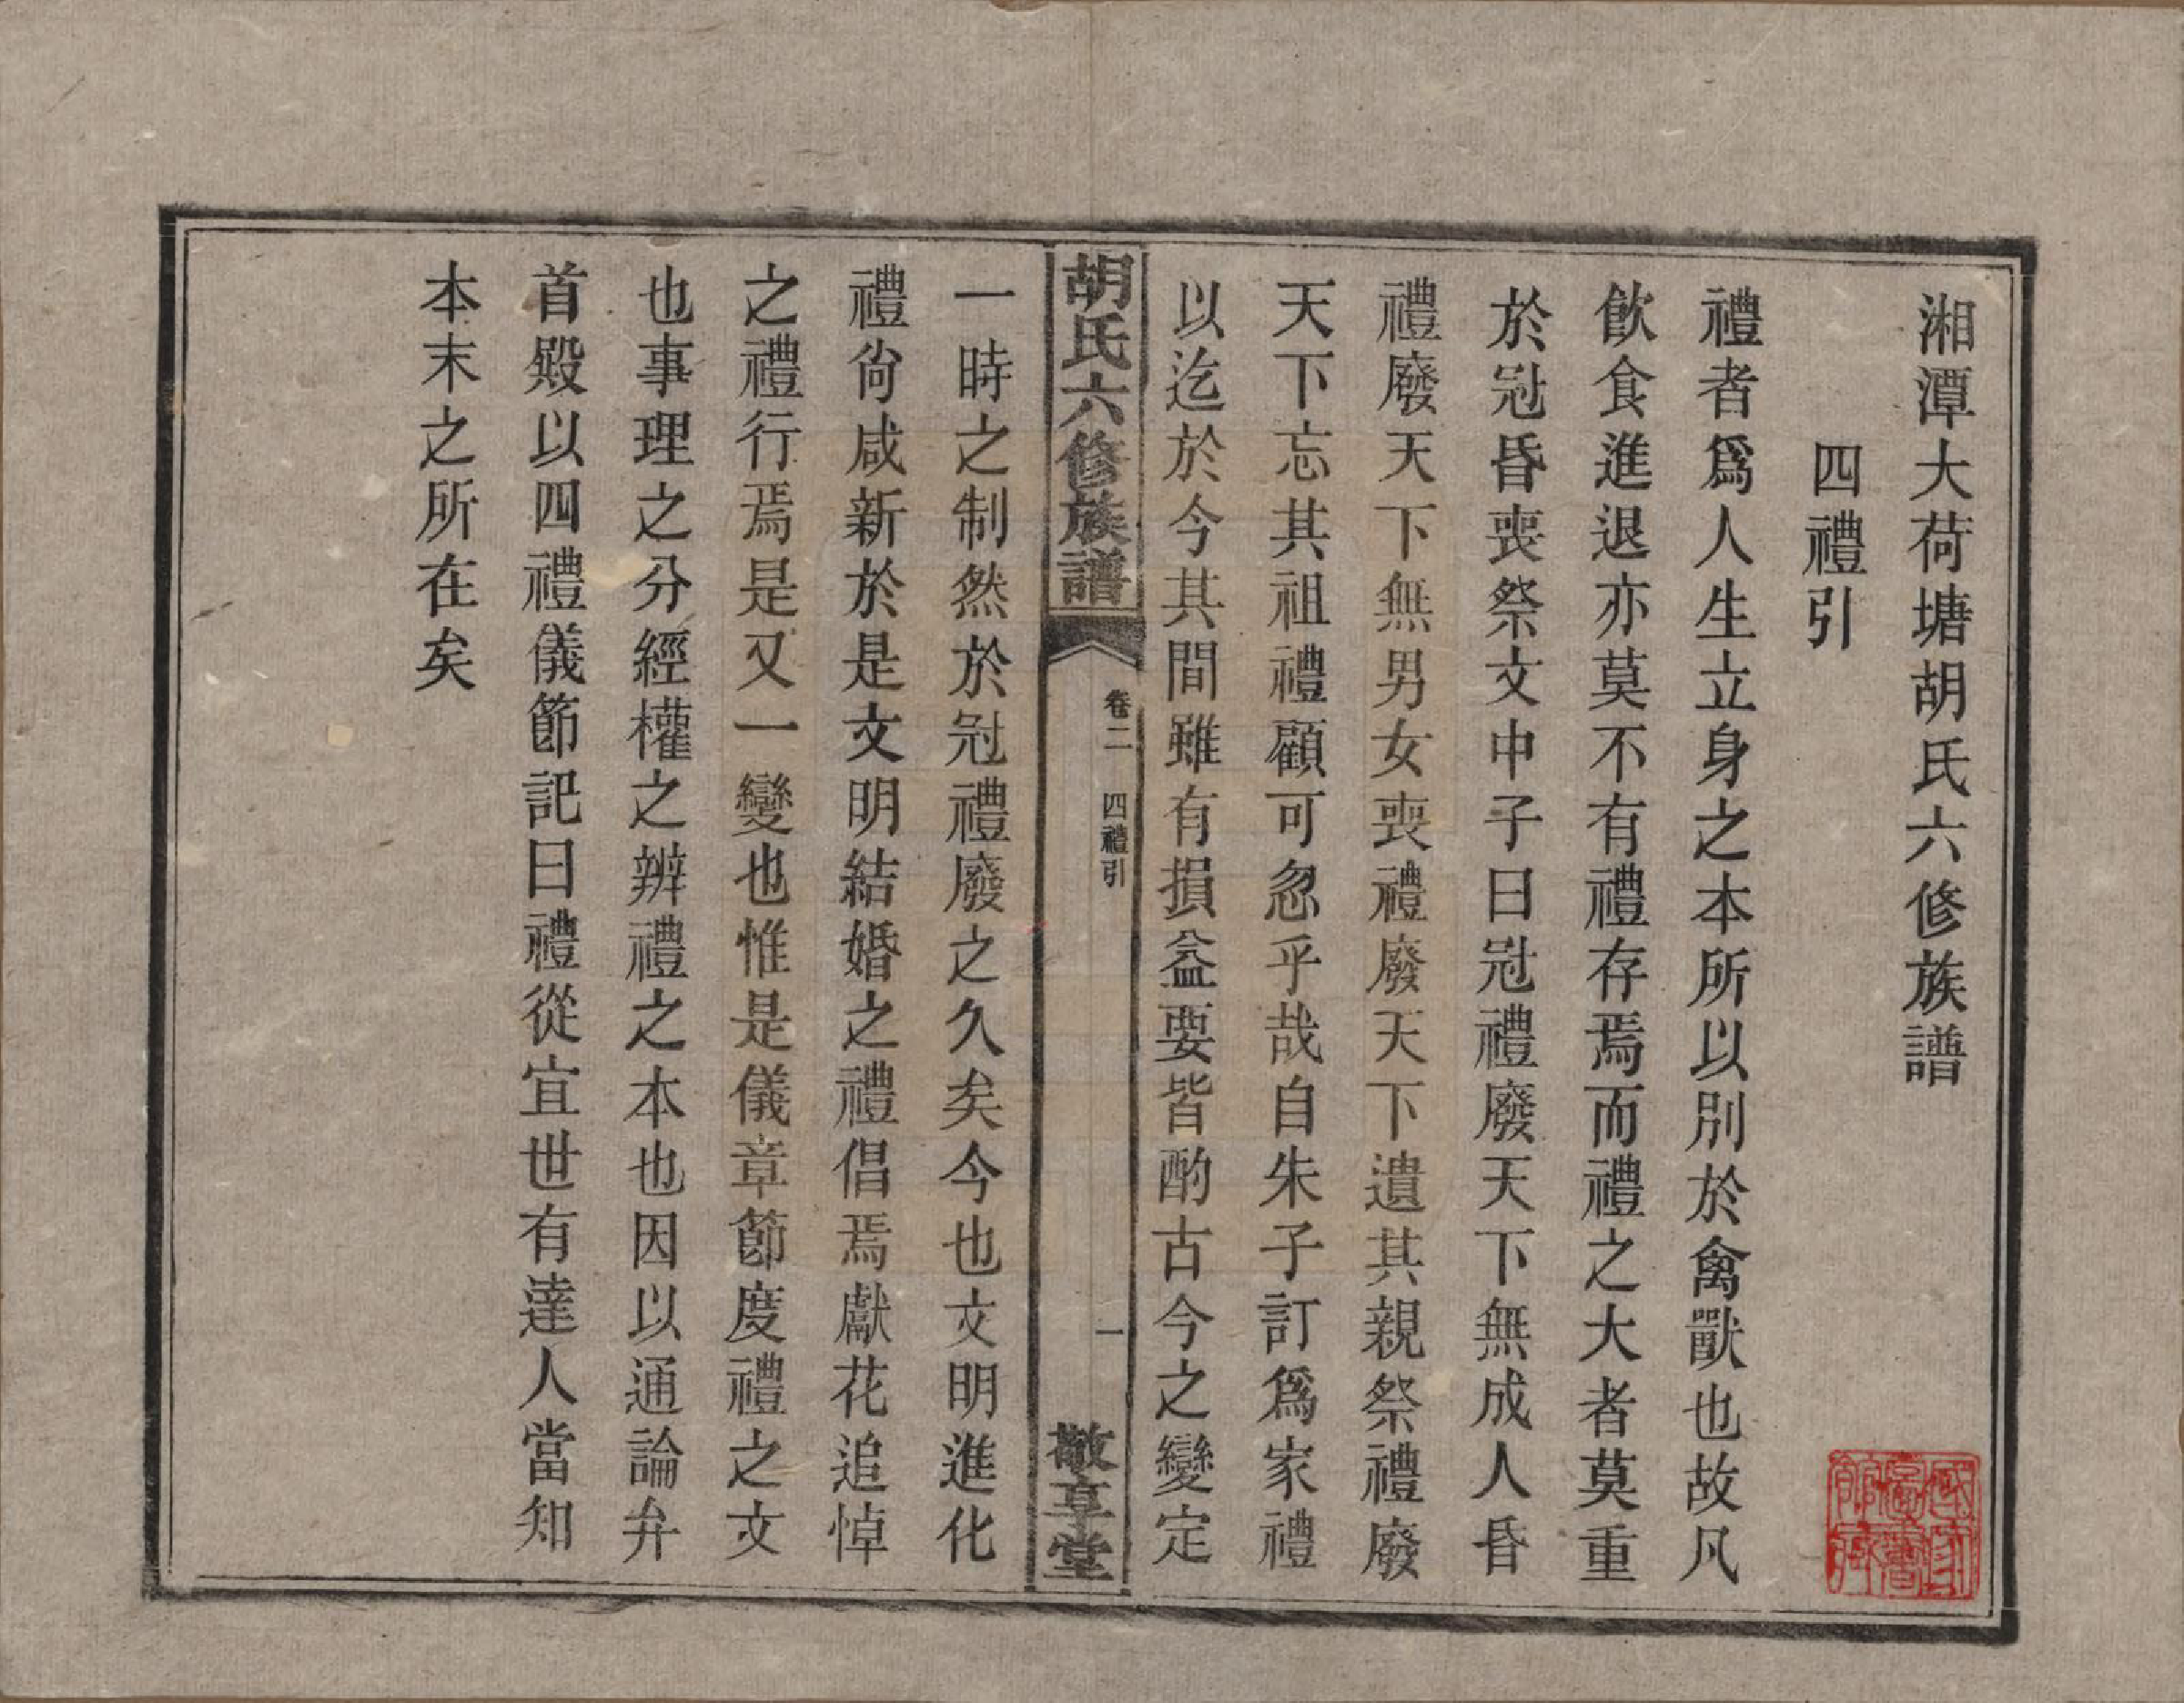 湘潭大荷塘胡氏六修族譜
四禮引
禮者爲人生立身之本所以別於禽獸也故凡
飲食進退亦莫不有禮存焉而禮之大者莫重
於冠昏喪祭文中子曰冠禮廢天下無成人昏
禮廢天下無男女喪禮廢天下遺其親祭禮廢
天下忘其祖禮顧可忽乎哉自朱子訂爲家禮
以迄於今其間雖有損益要皆酌古今之變定
胡氏六修族譜
卷二
四禮引
一
敬享堂
一時之制然於冠禮廢之久矣今也文明進化
禮尙咸新於是文明結婚之禮倡焉獻花追悼
之禮行焉是又一變也惟是儀章節度禮之文
也事理之分經權之辨禮之本也因以通論弁
首殿以四禮儀節記曰禮從宜世有達人當知
本末之所在矣
國家圖書館藏書